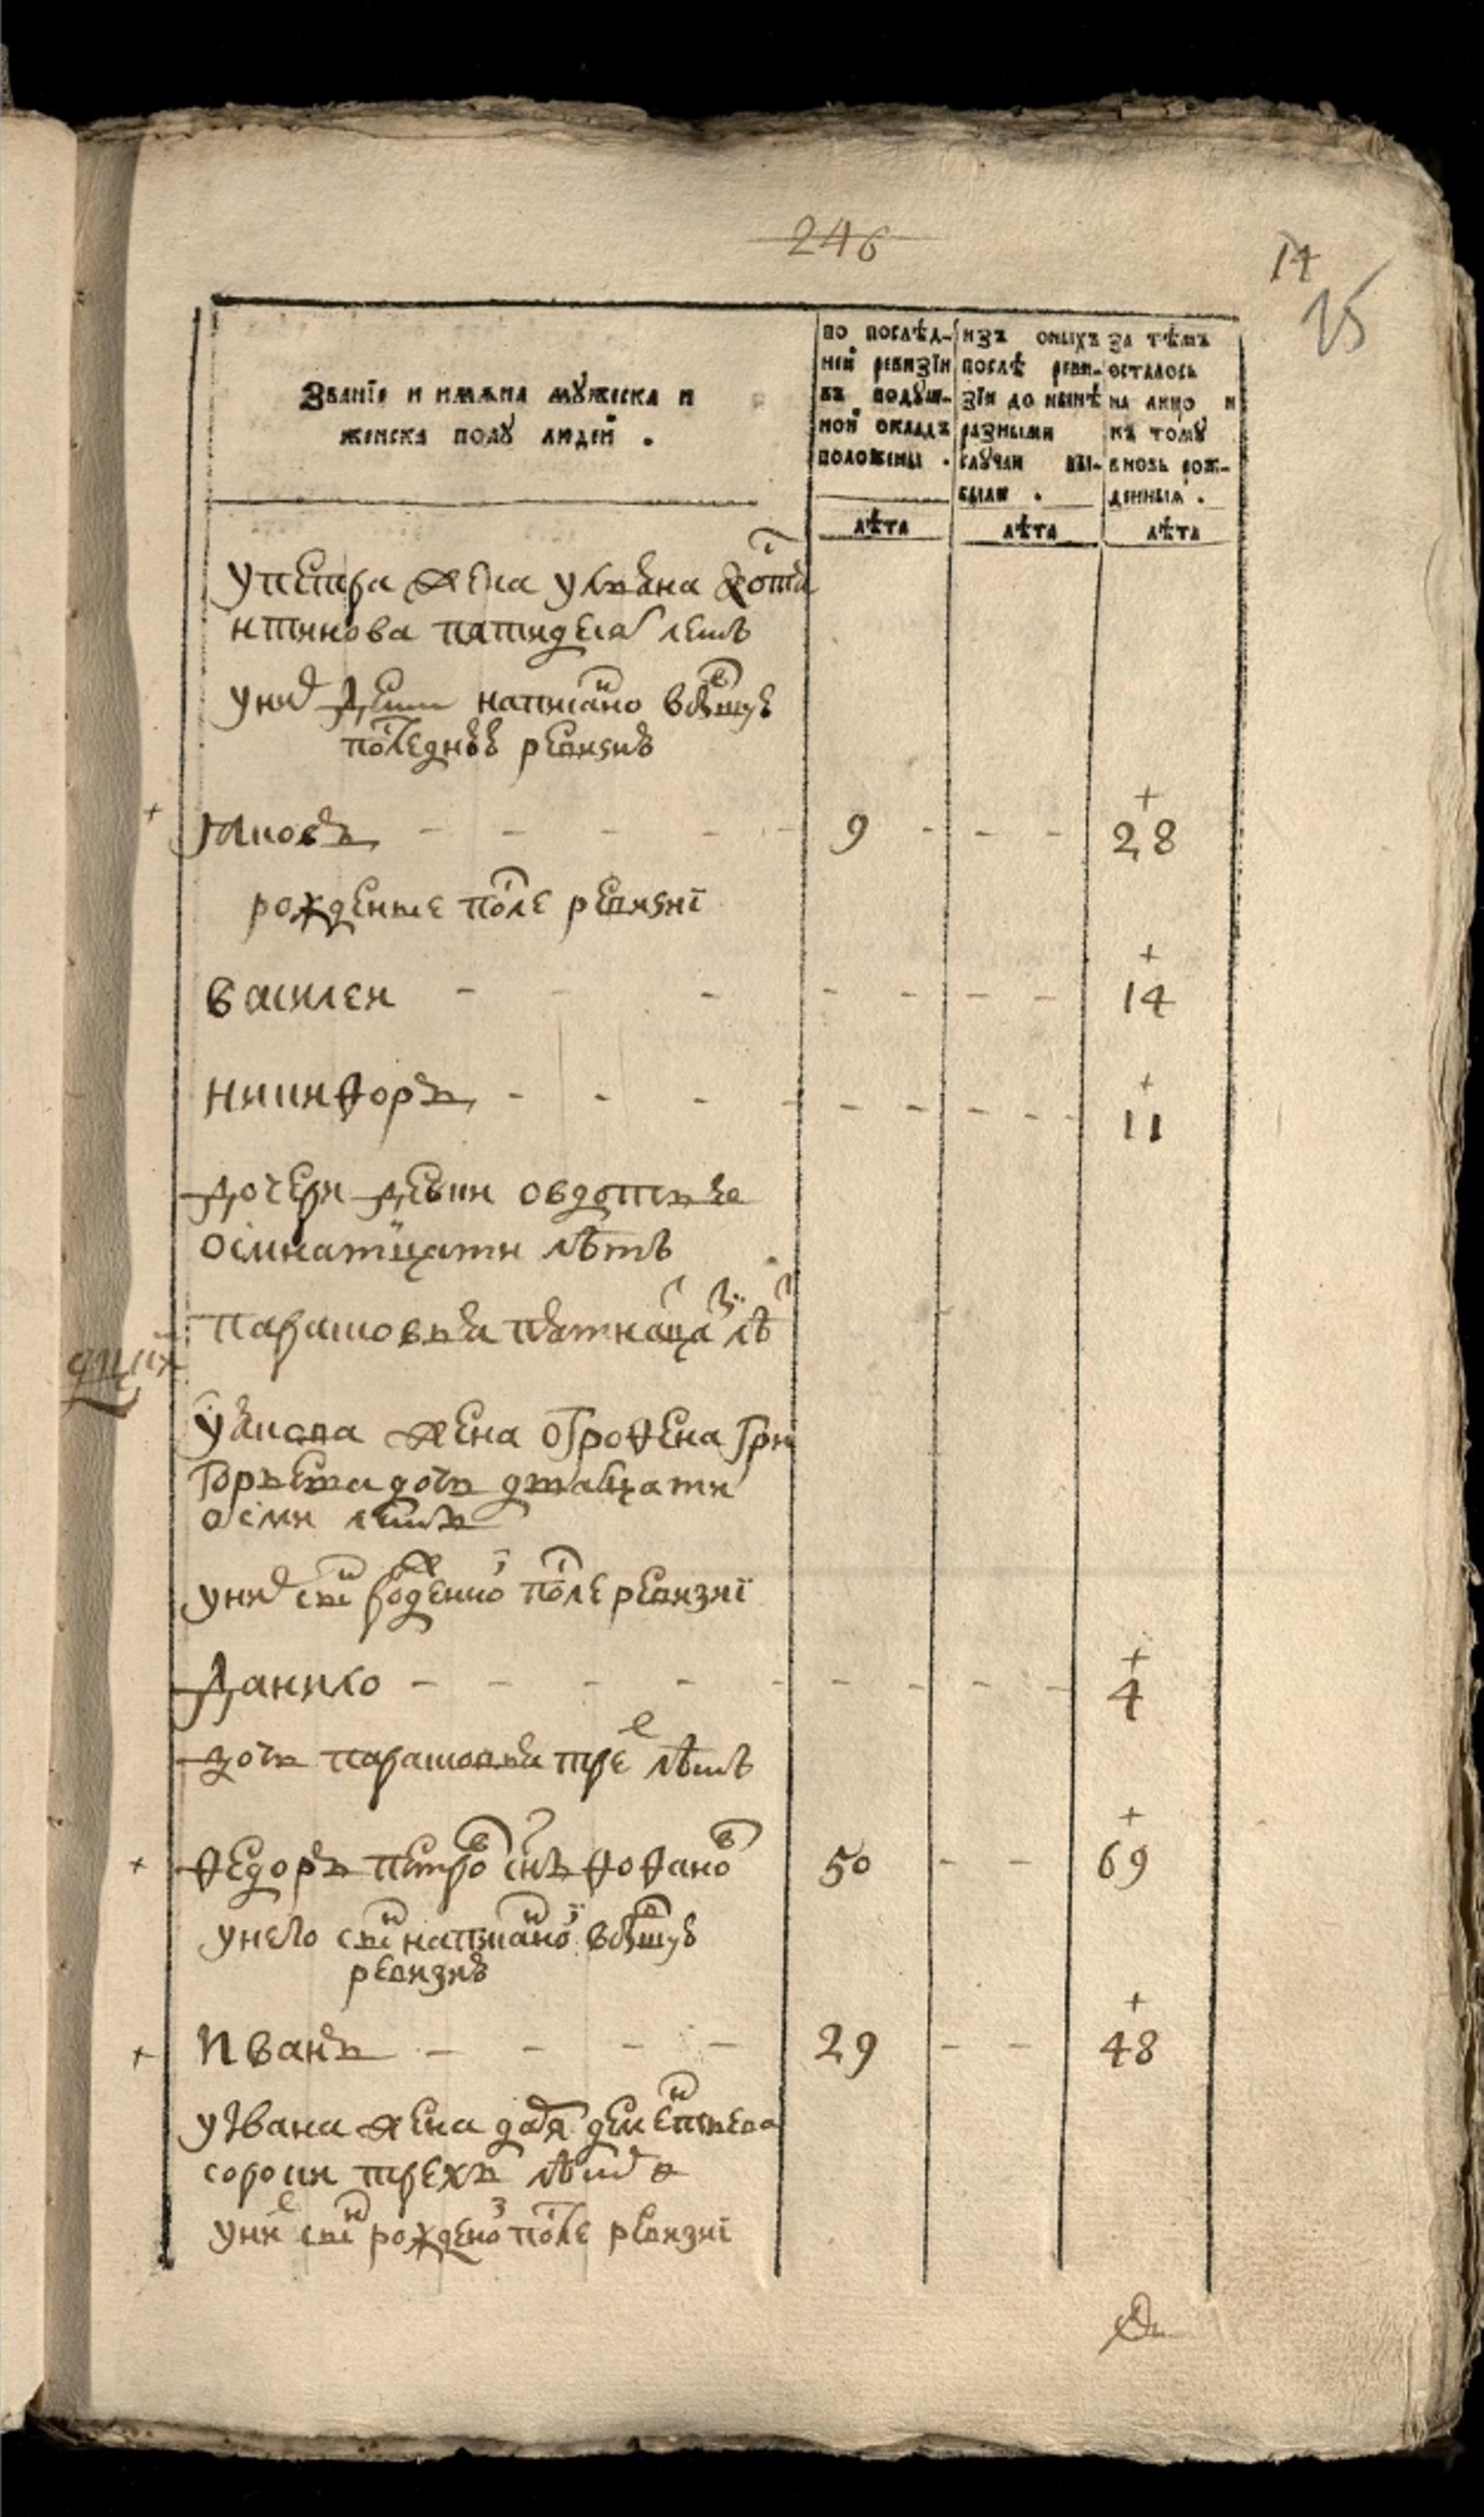 246
14
25
Званїѧ и имѧна мꙋжеска и
женска полꙋ людей .
по послѣд-
ней ревизїи
въ подꙋш-
ной окладъ
положены .
изъ оныхъ
послѣ реви-
зїи до нынѣ
разными
слꙋчаи вы-
были .
за тѣмъ
осталось
на лицо и
къ тому
вновь рож-
денныхъ .
лѣта
лѣта
лѣта
упетра жена ульяна коста
нтинова патидеса летъ
уних дети написано въбывшуѣ
последнѣѣ ревизиѣ
+ Яковъ 9 + 28
рожденые после ревизиї
василеи + 14
никиѳоръ + 11
дочери девки овдотья
осмнатцати лѣтъ
парасковья пятнаца лѣ
уякова жена огроѳена гри
горьева дочь дватцати
осми летъ
уних сн рожденно после ревизиї
данило + 4
дочь парасковья тре лѣтъ
+ ѳедоръ петро снъ ѳоѳано 50 + 69
унего сн написано въбывшуѣ
ревизиѣ
+ Иванъ 29 + 48
уИвана жена дементьева
сороки трехъ лѣт
уни сн рождено после ревизиї